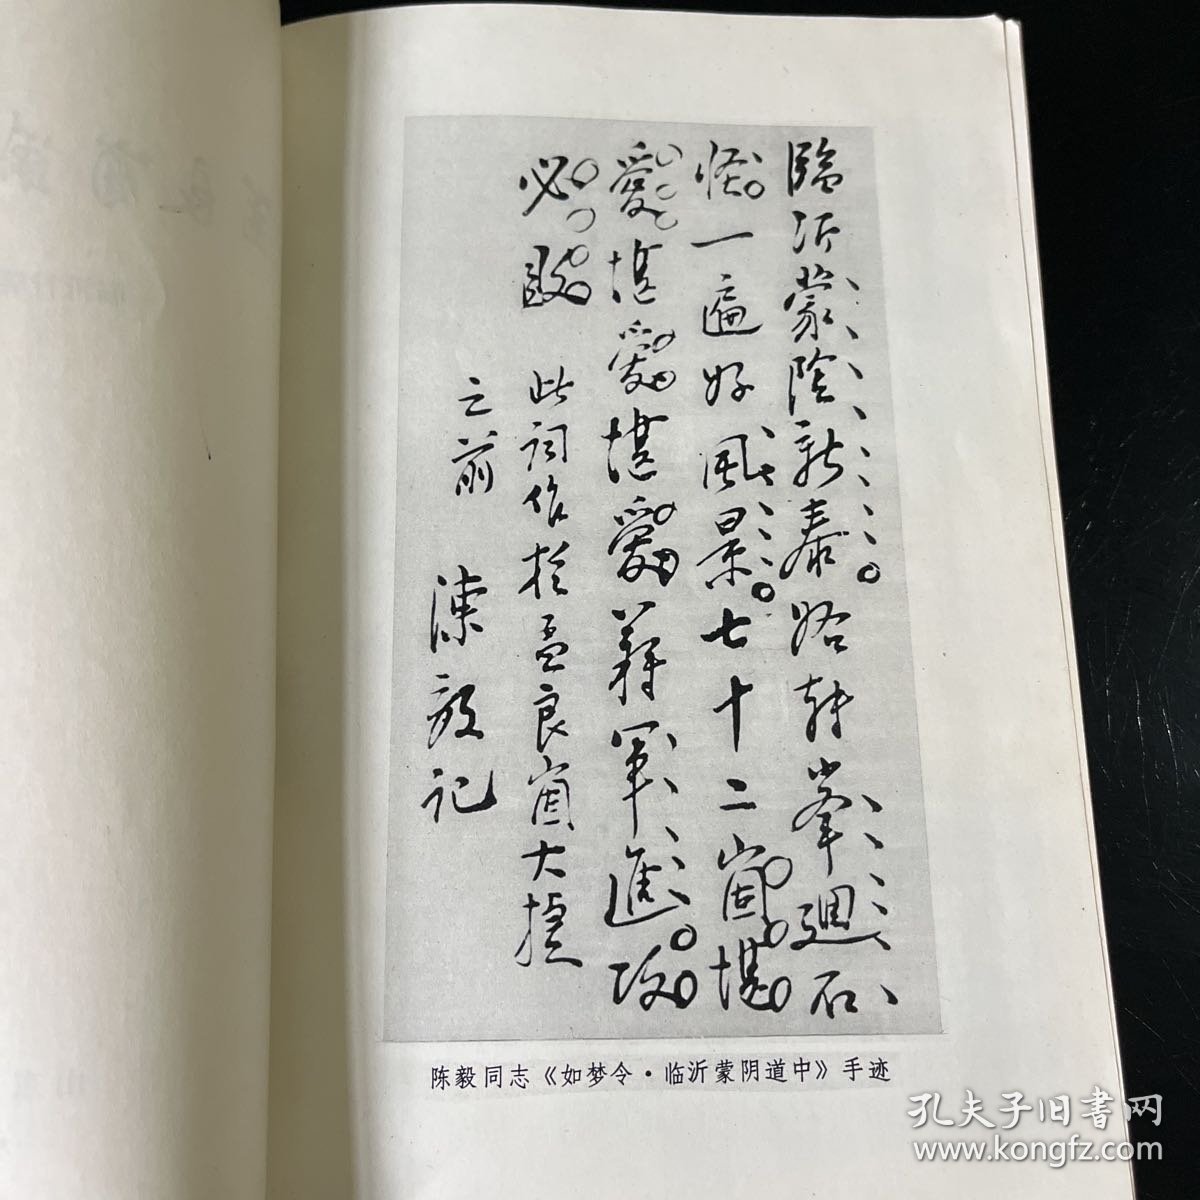 臨沂蒙陰新泰路转峯廻石
怪一遍好風景七十二崮堪
愛堪愛堪愛蔣軍進攻
必敗 此词作於孟良崮大捷
之前 陳毅记
陈毅同志《如梦令·临沂蒙阴道中》手迹
孔夫子旧书网
www.kongfz.com